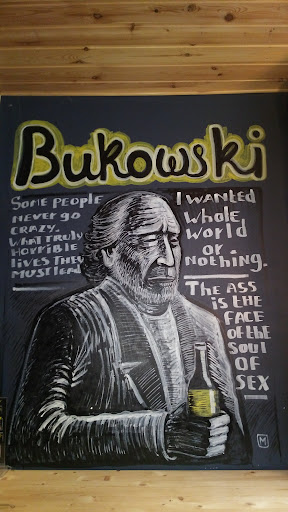 Bukowski
SOME PEOPLE
NEVER GO
CRAZY.
WHAT TRULY
HORRIBLE
LIVES THEY
MUST LEAD
I WANTED
WHOLE
WORLD
OR
NOTHING.
THE ASS
IS THE
FACE
OF THE
SOUL
OF
SEX
M